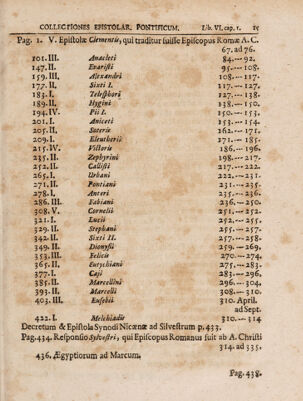 COLLECTIONES EPISTOLAR. PONTIFICUM. Lib. VI. cap. 1. 15
Pag. 1. V. Epistolæ Clementis, qui traditur fuisse Episcopus Romæ A. C.
67. ad 76.
101. III. Anacleti 84.--- 92.
147. II. Evaristi 95.--- 108.
159. III. Alexandri 108.--- 117.
177. II. Sixti I. 117.--- 127.
183. I. Telesphori 127.--- 138.
189. II. Hygini 138.--- 150.
194. IV. Pii I. 150.--- 153.
201. I. Aniceti 153.--- 154.
205. II. Soterie 162.--- 171.
209. I. Eleutherii 171.--- 185.
215. IV. Victorie 186.--- 196.
235. II. Zephyrini 198.--- 217.
252. II. Callisti 217.--- 222.
265. I. Urbani 222.--- 231.
271. II. Pontiani 231.--- 235.
278. I. Anteri 235.--- 236.
286. III. Fabiani 236.--- 250.
308. V. Cornelii 251.--- 252.
321. I. Lucii 252.--- 255.
329. II. Stephani 255.--- 257.
342. II. Sixti II. 257.--- 258.
349. II. Dionysii 259.--- 269.
353. III. Felicis 270.--- 274.
365. II. Eutychiani 275.--- 283.
377. I. Caji 283.--- 296.
385. II. Marcellini 296.--- 304.
393. II. Marcelli 304.--- 310.
403. III. Eusebii 310. April.
ad Sept.
422. I. Melchiadis 310.--- 314
Decretum & Epistola Synodi Nicænæ ad Silvestrum p. 433.
Pag. 434. Responsio Sylvestri, qui Episcopus Romanus fuit ab A. Christi
314. ad 335.
436. Ægyptiorum ad Marcum.
Pag. 438.